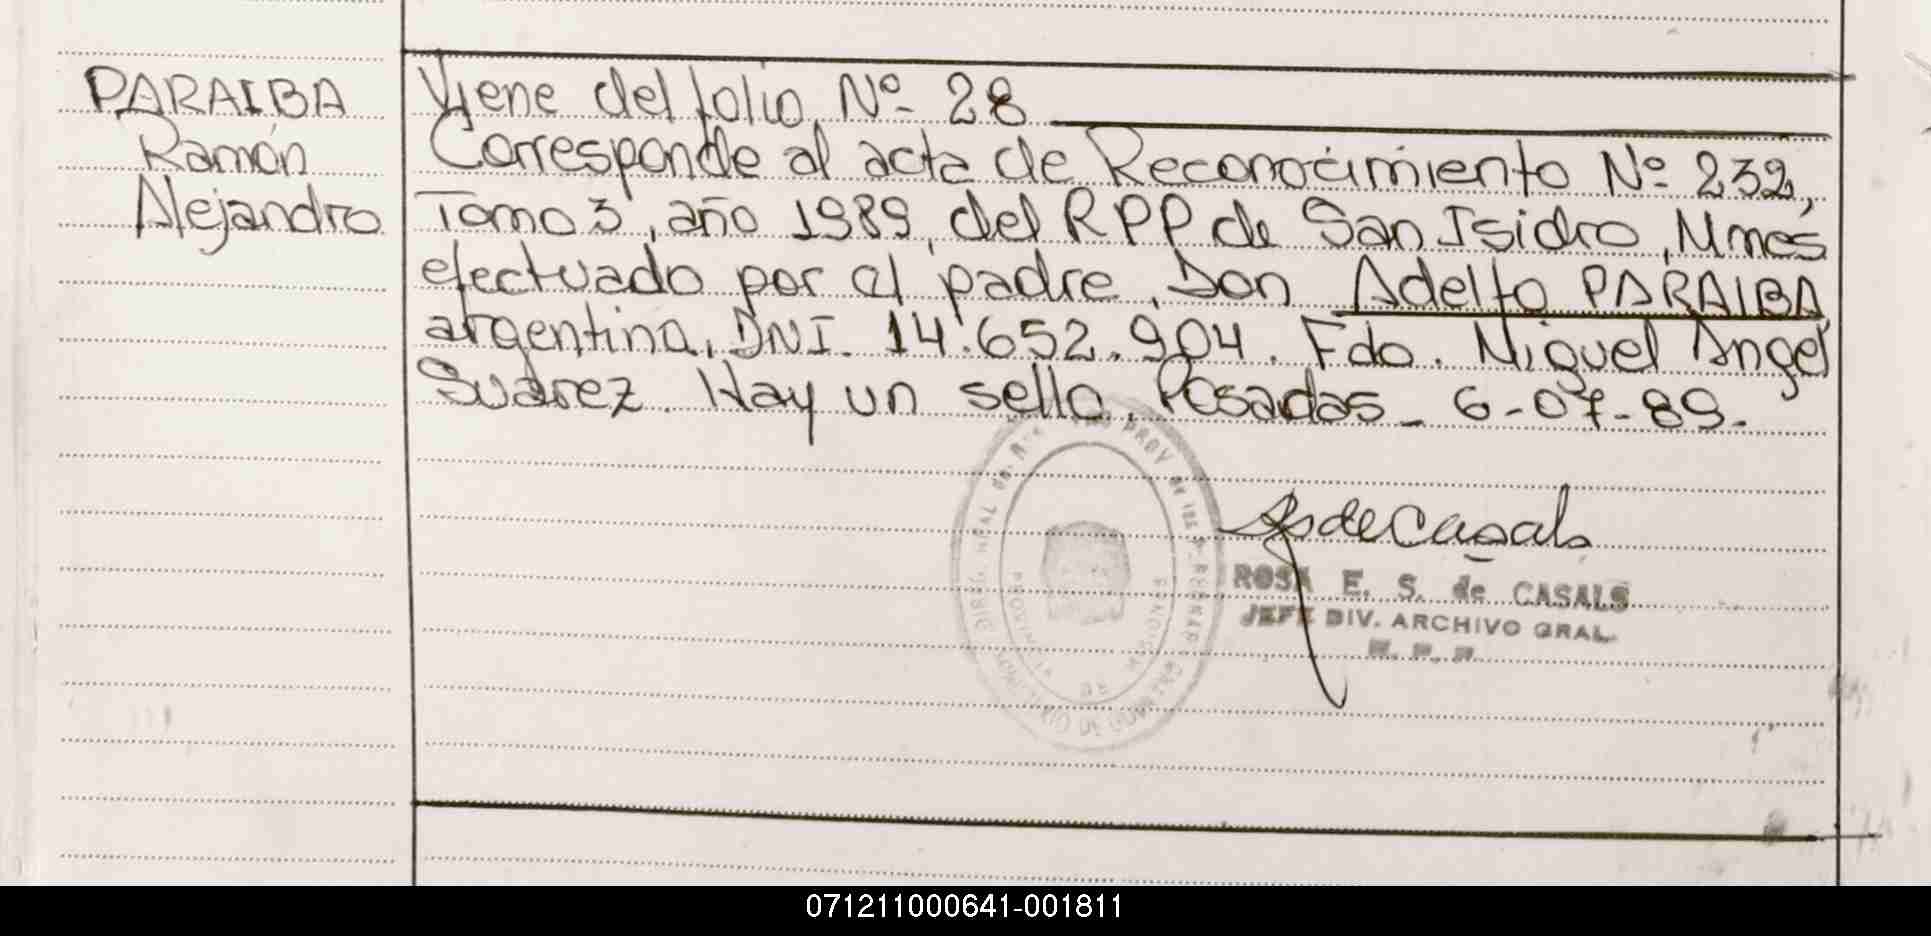 PARAIBA
Ramón
Alejandro
Viene del folio Nº 28
Corresponde al acta de Reconocimiento Nº 232,
Tomo 3, año 1989, del RPP de San Isidro, Mnes
efectuado por el padre, Don Adelfo PARAIBA
argentina, DNI. 14.652.904. Fdo. Miguel Angel
Suárez. Hay un sello. Posadas_ 6-07-89.
deCasals
ROSA E. S. de CASALS
JEFE DIV. ARCHIVO GRAL.
R. P. P.
PROV. de las PERSONAS
PROVINCIA DE MISIONES
071211000641-001811